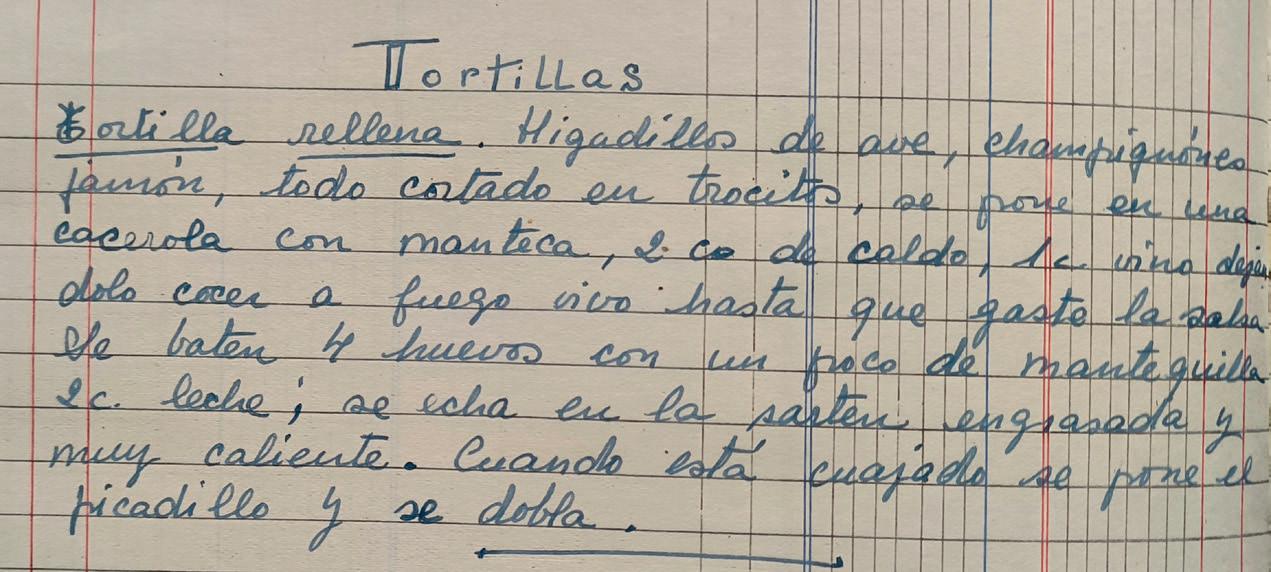 Tortillas
Tortilla rellena. Higadillos de ave, champiguónes
jamón, todo cortado en trocitos, se pone en una
cacerola con manteca, 2 co de caldo, 1c vino dején
dolo cocer a fuego vivo hasta que gaste la salsa
Se baten 4 huevos con un poco de mantequilla
2c. leche; se echa en la sartén engrasada y
muy caliente. Cuando está cuajado se pone el
picadillo y se dobla.